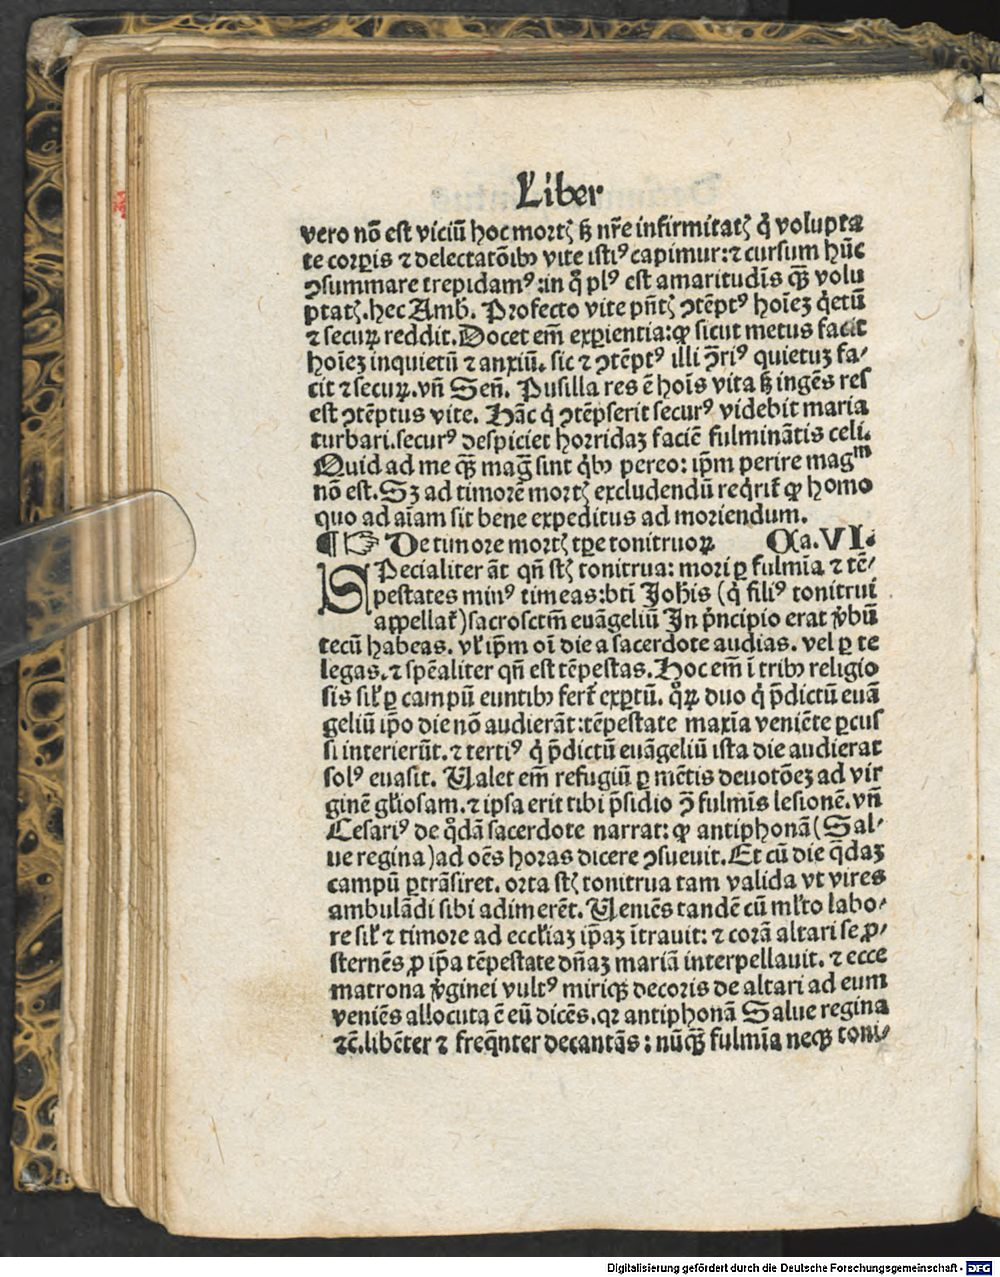 Liber
vero nō est viciū hoc mortꝫ sꝫ nr̄e infirmitatꝫ q̇ volupta
te corꝑis ⁊ delectatōibꝰ vite istiꝰ capimur: ⁊ cursum hūc
ꝯsummare trepidamꝰ: in q̊ plꝰ est amaritudīs qꝫ̄ volu
ptatꝫ. hec Amb. Profecto vite pn̄tꝫ ꝯtēptꝰ hoīeꝫ q̇etū
⁊ securꝝ reddit. Docet em̄ exꝑientia: ꝙ sicut metus facit
hoīeꝫ inquietū ⁊ anxiū. sic ⁊ ꝯtēptꝰ illi ꝯ̄riꝰ quietuꝫ fa-
cit ⁊ securꝝ. vn̄ Sen̄. Pusilla res ē hoīs vita sꝫ ingēs res
est ꝯtēptus vite. Hāc q̇ ꝯtēpserit securꝰ videbit maria
turbari. securꝰ despiciet horridaꝫ faciē fulminātis celi.
Quid ad me qꝫ̄ maḡ sint q̇bꝰ pereo: ip̄m perire magᵐ
nō est. Sꝫ ad timorē mortꝫ excludendū req̇rit᷑ ꝙ homo
quo ad aīam sit bene expeditus ad moriendum.
¶ ☞ De timore mortꝫ tꝑe tonitruoꝝ Ca. VI.
SPecialiter āt qn̄ st̄ꝫ tonitrua: mori ꝑ fulmīa ⁊ tē-
pestates minꝰ timeas: bt̄i Joh̄is (q̇ filiꝰ tonitrui
appellat᷑) sacrosct̄m euāgeliū In pͥncipio erat v̄bū
tecū habeas. vꝉ ip̄m oī die a sacerdote audias. vel ꝑ te
legas. ⁊ spēaliter qn̄ est tēpestas. Hoc em̄ ī tribꝰ religio
sis silꝉ ꝑ campū euntibꝰ fert᷑ exꝑtū. q̊ꝝ duo q̇ p̄dictū euā
geliū ip̄o die nō audierāt: tēpestate maxīa veniēte ꝑcus
si interierūt. ⁊ tertiꝰ q̇ p̄dictū euāgeliū ista die audierat
solꝰ euasit. Ualet em̄ refugiū ꝑ mētis deuotōeꝫ ad vir
ginē gꝉiosam. ⁊ ipsa erit tibi p̄sidio ꝯ̄ fulmīs lesionē. vn̄
Cesariꝰ de q̊dā sacerdote narrat: ꝙ antiphonā (Sal-
ue regina) ad oēs horas dicere ꝯsueuit. Et cū die q̄daꝫ
campū ꝑtrāsiret. orta st̄ꝫ tonitrua tam valida vt vires
ambulādi sibi adimerēt. Ueniēs tandē cū mꝉto labo-
re silꝉ ⁊ timore ad eccꝉiaꝫ ip̄aꝫ ītrauit: ⁊ corā altari se ꝓ-
sternēs ꝓ ip̄a tēpestate dn̄aꝫ mariā interpellauit. ⁊ ecce
matrona v̄ginei vultꝰ miriqꝫ decoris de altari ad eum
veniēs allocuta ē eū dicēs. qꝛ antiphonā Salue regina
⁊c̄. libēter ⁊ freq̄nter decantās: nūqꝫ̄ fulmīa neqꝫ toni-
Digitalisierung gefördert durch die Deutsche Forschungsgemeinschaft - DFG